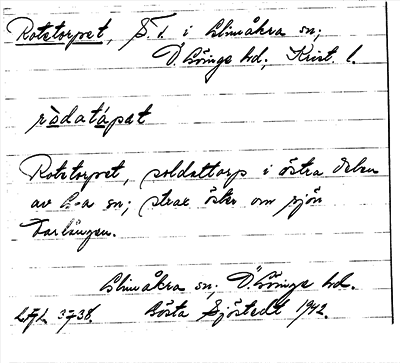 Rotstorpet, S.T. i Glimåkra sn;
Ö. Göinge hd; Krist. l.
ròdatápat
Rotstorpet, soldattorp i östra delen
av G-a sn; strax öster om sjön
Glimåkra sn; Ö. Göinge hd.
3738. Gösta Sjöstedt 1942.